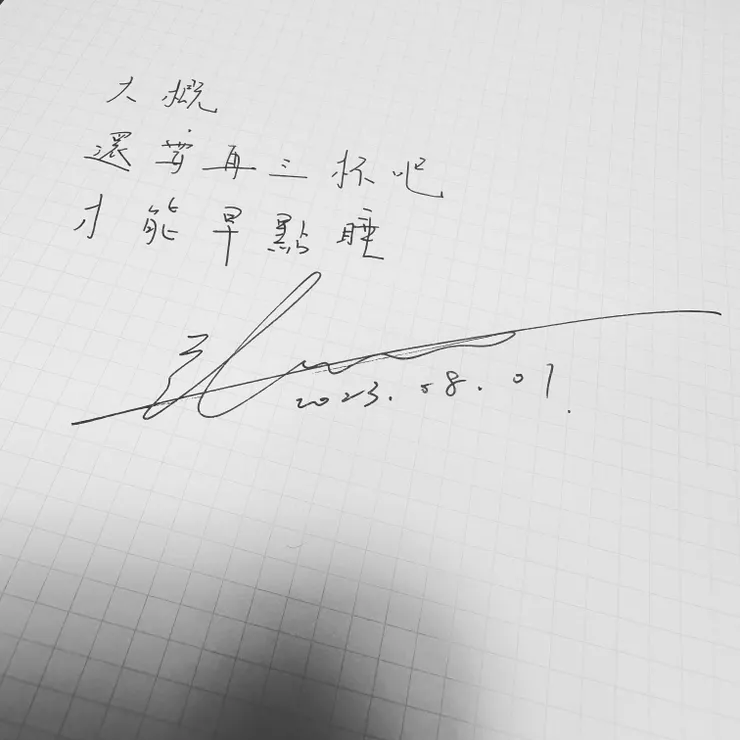 大概
還要再三杯吧
才能早點睡
2023.08.01.